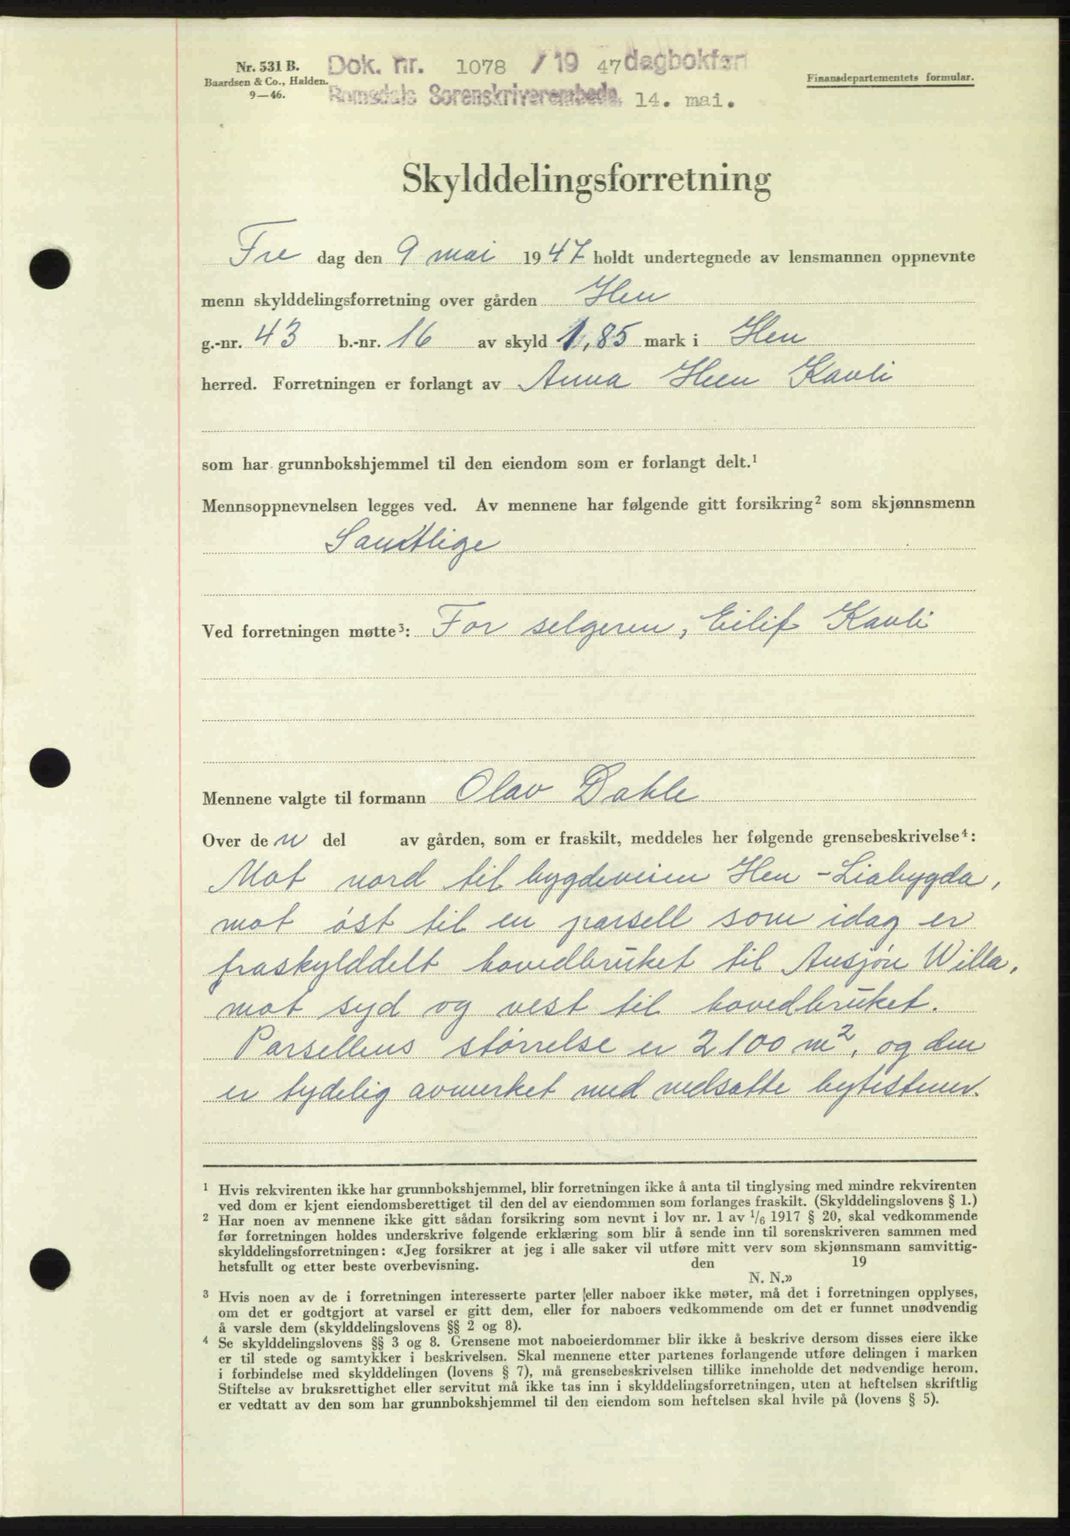 Nr. 531 B.
Baardsen & Co., Halden.
9—46.
Dok. nr. 1078 /19 47 dagbokført
Romsdals Sorenskriverembede. 14. mai.
Finansdepartementets formular.
Skylddelingsforretning
Fre dag den 9 mai 1947 holdt undertegnede av lensmannen oppnevnte
menn skylddelingsforretning over gården Hen
g.-nr. 43 b.-nr. 16 av skyld 1,85 mark i Hen
herred. Forretningen er forlangt av Anna Hen Kavli
som har grunnbokshjemmel til den eiendom som er forlangt delt.¹
Mennsoppnevnelsen legges ved. Av mennene har følgende gitt forsikring² som skjønnsmenn
Samtlige
Ved forretningen møtte³: For selgeren, Eilif Kavli
Mennene valgte til formann Olav Dahle
Over den del av gården, som er fraskilt, meddeles her følgende grensebeskrivelse⁴:
Mot nord til bygdeveien Hen - Liabygda,
mot øst til en parsell som idag er
fraskylddelt hovedbruket til Ansjøn Willa,
mot syd og vest til hovedbruket.
Parsellens størrelse er 2100 m², og den
er tydelig avmerket med nedsatte bytesteiner.
¹ Hvis rekvirenten ikke har grunnbokshjemmel, blir forretningen ikke å anta til tinglysing med mindre rekvirenten
ved dom er kjent eiendomsberettiget til den del av eiendommen som forlanges fraskilt. (Skylddelingslovens § 1.)
² Har noen av mennene ikke gitt sådan forsikring som nevnt i lov nr. 1 av ¹/₆ 1917 § 20, skal vedkommende
før forretningen holdes underskrive følgende erklæring som blir å sende inn til sorenskriveren sammen med
skylddelingsforretningen: «Jeg forsikrer at jeg i alle saker vil utføre mitt verv som skjønnsmann samvittig-
hetsfullt og etter beste overbevisning. den 19
N. N.»
³ Hvis noen av de i forretningen interesserte parter eller naboer ikke møter, må det i forretningen opplyses,
om det er godtgjort at varsel er gitt dem, eller for naboers vedkommende om det er funnet unødvendig
å varsle dem (skylddelingslovens §§ 2 og 8).
⁴ Se skylddelingslovens §§ 3 og 8. Grensene mot naboeierdommer blir ikke å beskrive dersom disses eiere ikke
er til stede og samtykker i beskrivelsen. Skal mennene etter partenes forlangende utføre delingen i marken
i forbindelse med skylddelingen (lovens § 7), må grensebeskrivelsen tillike inneholde det nødvendige herom.
Stiftelse av bruksrettighet eller servitut må ikke tas inn i skylddelingsforretningen, uten at heftelsen skriftlig
er vedtatt av den som har grunnbokshjemmel til den eiendom som heftelsen skal hvile på (lovens § 5).